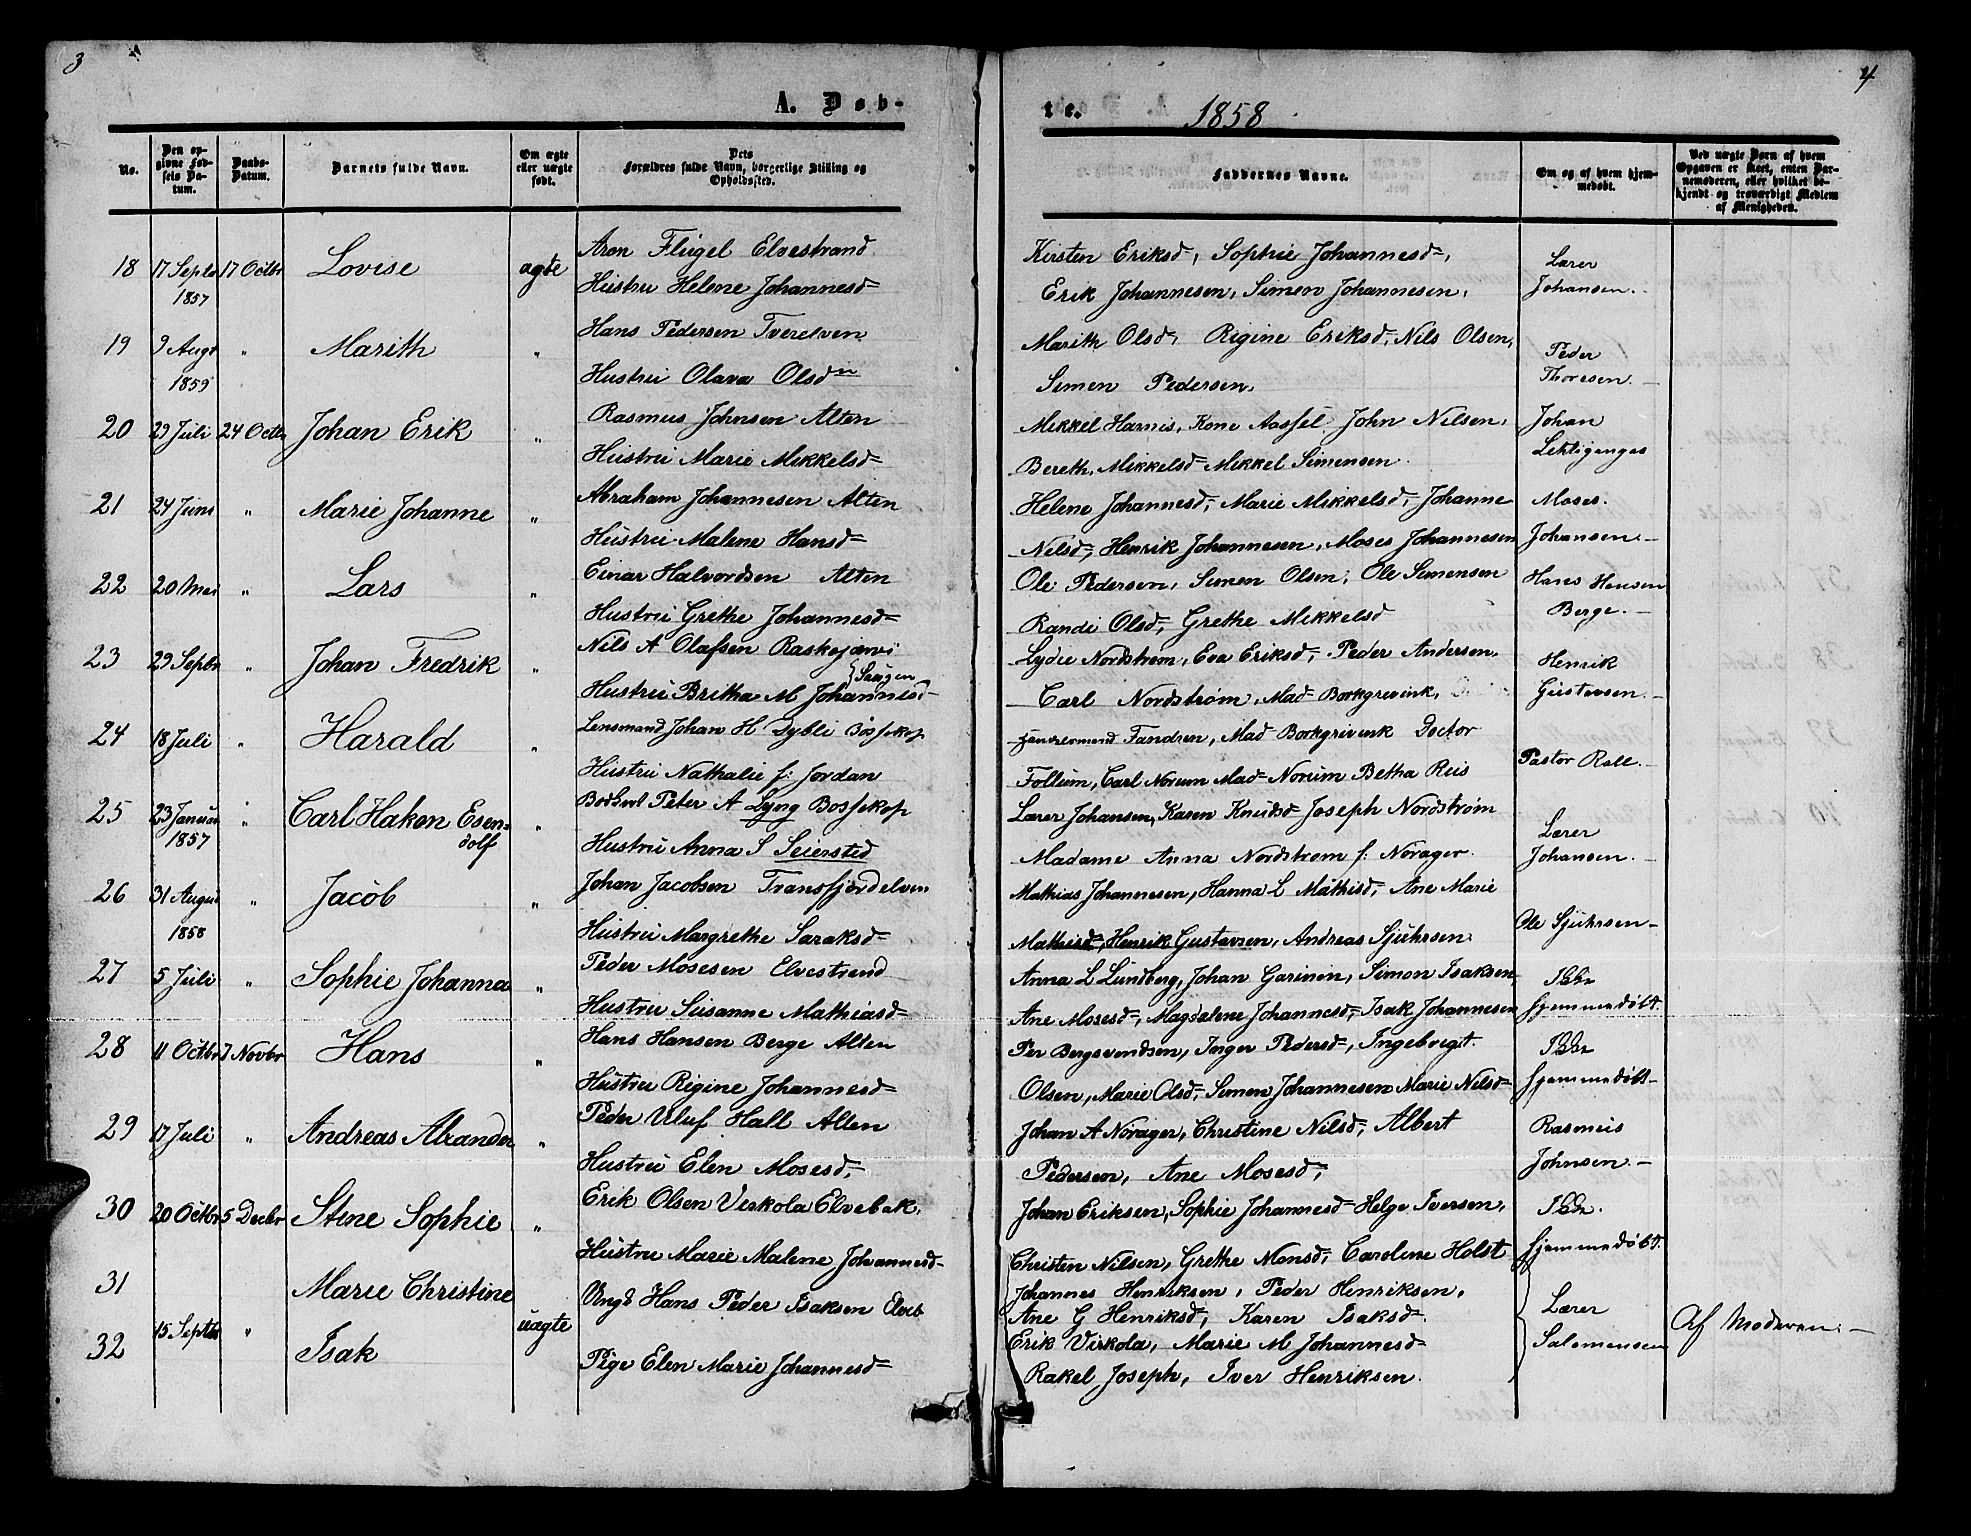 3
4
A. Døb-
te. 1858
No. | Den opgivne Fødsels Datum. | Daabs-Datum. | Barnets fulde Navn. | Om ægte eller uægte født. | Dets Forældres fulde Navn, borgerlige Stilling og Opholdssted. | Faddernes Navne. | Om og af hvem hjemmedøbt. | Ved uægte Børn af hvem Opgaven er skeet, enten Barnemoderen, eller hvilket bekjendt og troværdigt Medlem af Menigheden.
18 17 Septr 1857 17 Octbr Lovise ægte Aron Flügel Elvestrand Kirsten Eriksd=, Sophie Johannesd=, Lærer
Hustru Helene Johannesd= Erik Johannesen, Simon Johannesen, Johansen.
19 9 Augs 1859 " Marith " Hans Pedersen Tverelven Marith Olsd= Rigine Eriksd=, Nils Olsen, Peder
Hustru Olava Olsdn Simen Pedersen, Thoresen.
20 29 Juli 24 Octbr Johan Erik " Rasmus Johnsen Alten Mikkel Harnis, Kone Aassel John Nilsen, Johan
Hustru Marie Mikkelsd= Bereth, Mikkelsd= Mikkel Simensen.
21 24 Juni " Marie Johanne " Abraham Johannesen Alten Helene Johannesd=, Marie Mikkelsd=, Johanne Moses.
Hustru Malene Hansd= Nilsd=, Henrik Johannesen, Moses Johannesen Johansen.
22 20 Mai " Lars " Einar Halvordsen Alten Ole Pedersen, Simen Olsen, Ole Simensen Hans Hansen
Hustru Grethe Johannesd= Randi Olsd=, Grethe Mikkelsd Berge.
23 29 Septbr " Johan Fredrik " Nils A Olafsen Raskojærvi Lydie Nordstrøm, Eva Eriksd=, Peder Andersen, Henrik
Hustru Britha M Johannesd= Carl Nordstrøm, Mad= Borkgrivink, Gustavsen.
24 18 Juli " Harald " Lensmand Johan H Dybli Bossekop Tandren, Mad Borkgrivink Doctor Pastor Rall.
Hustru Nathalie f: Jordan Follum, Carl Norum Mad= Norum Betha Reis
25 23 Januar 1857 " Carl Hakon Esen=dolf " Peter A Lyng Bossekop Lærer Johansen, Karen Knudsd= Joseph Nordstrøm Lærer
Hustru Anna S Seiersted Madame Anna Nordstrøm f: Norager. Johansen.
26 31 August 1858 " Jacob " Johan Jacobsen Transfjordelven Mathias Johannesen, Hanna L Mathisd=, Ane Marie Ole Sjuhrsen
Hustru Margrethe Saraksd= Mathisd=, Henrik Gustavsen, Andreas Sjuhrsen
27 5 Juli " Sophie Johanna " Peder Mosesen Elvestrand Anna L Lundberg, Johan Garinin, Simon Isaksen, Ikke
Hustru Susanne Mathiasd= Ane Mosesd=, Magdalene Johannesd=, Isak Johannesen hjemmedøbt.
28 11 Octbr 7 Novbr Hans " Hans Hansen Berge Alten Per Bergsvendsen, Inger Pedersd=, Ingebrigt. Ikke
Hustru Rigine Johannesd= Olsen, Marie Olsd=, Simon Johannesen Marie Nilsd= hjemmedøbt
29 17 Juli " Andreas Alxander " Peder Uluf Hall Alten Johan A Norager, Christine Nilsd=, Albert Rasmus
Hustru Elen Mosesd=, Pedersen, Ane Mosesd=, Johnsen.
30 20 Octbr 5 Decbr Stine Sophie " Erik Olsen Virkola Elvebak, Johan Eriksen, Sophie Johannesd= Helge Iversen, Ikke.
Hustru Marie Malene Johannesd= Christen Nilsen, Grethe Monsd=, Caroline Holst hjemmedøbt.
31 15 Septbr " Marie Christine uægte Ungk Hans Peder Isaksen Elveb Johannes Henriksen, Peder Henriksen,
Ane G Henriksd=, Karen Isaksd= Lærer
32 Isak Pige Elen Marie Johannesd= Erik Virkola, Marie M Johannesd= Salomonsen Af Moderen.
Rakel Joseph, Iver Henriksen.